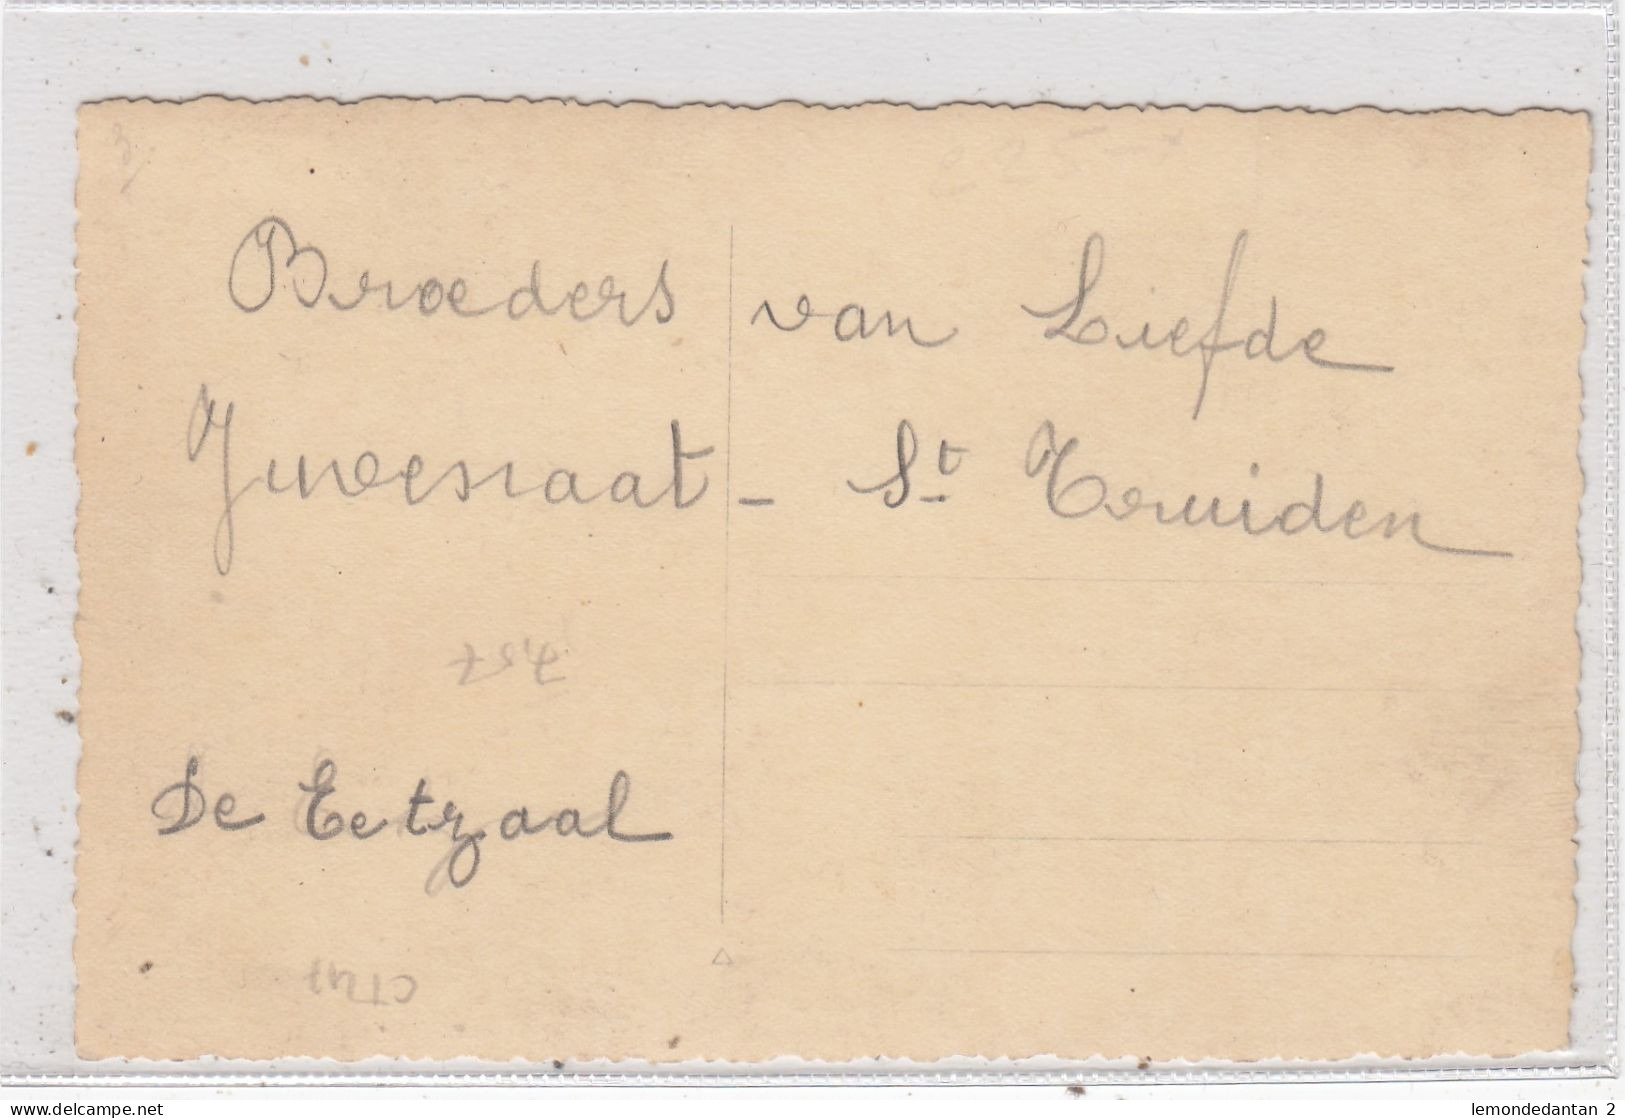 Broeders van Liefde
Juvenaat - St Truiden
De Eetzaal
www.delcampe.net
lemondedantan 2